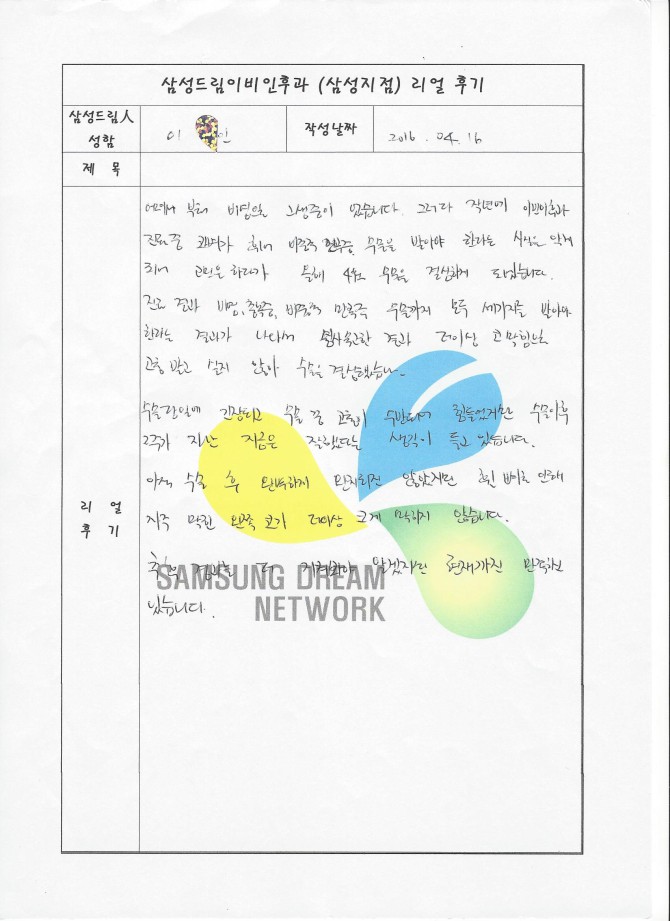 삼성드림이비인후과 (삼성지점) 리얼 후기
삼성드림人
성함
이 인
작성날짜
2016. 04. 16
제 목
리 얼
후 기
부터 비염으로 고생중이 었습니다. 그러다 작년에 이비인후과
진료 중 휘어 수술을 받아야 한다는 사실을 알게
되어 고민을 하다가 올해 4월 수술을 결심하게 되었습니다.
진료 결과 비염, 축농증, 비중격 만곡증 수술까지 모두 세가지를 받아야
한다는 결과가 나와서 결과 더이상 코막힘으로
고통 받고 싶지 않아 수술을 결심했습니다.
수술당일에 긴장되고 수술 중 고통이 수반되어 힘들었지만 수술이후
2주가 지난 지금은 잘했다는 생각이 들고 있습니다.
아직 수술 후 완벽하게 완치되진 않았지만 휜 뼈로 인해
자주 막힌 왼쪽 코가 더이상 크게 막히지 않습니다.
추후 경과를 더 지켜봐야 알겠지만 현재까진 만족하고
있습니다.
SAMSUNG DREAM
NETWORK